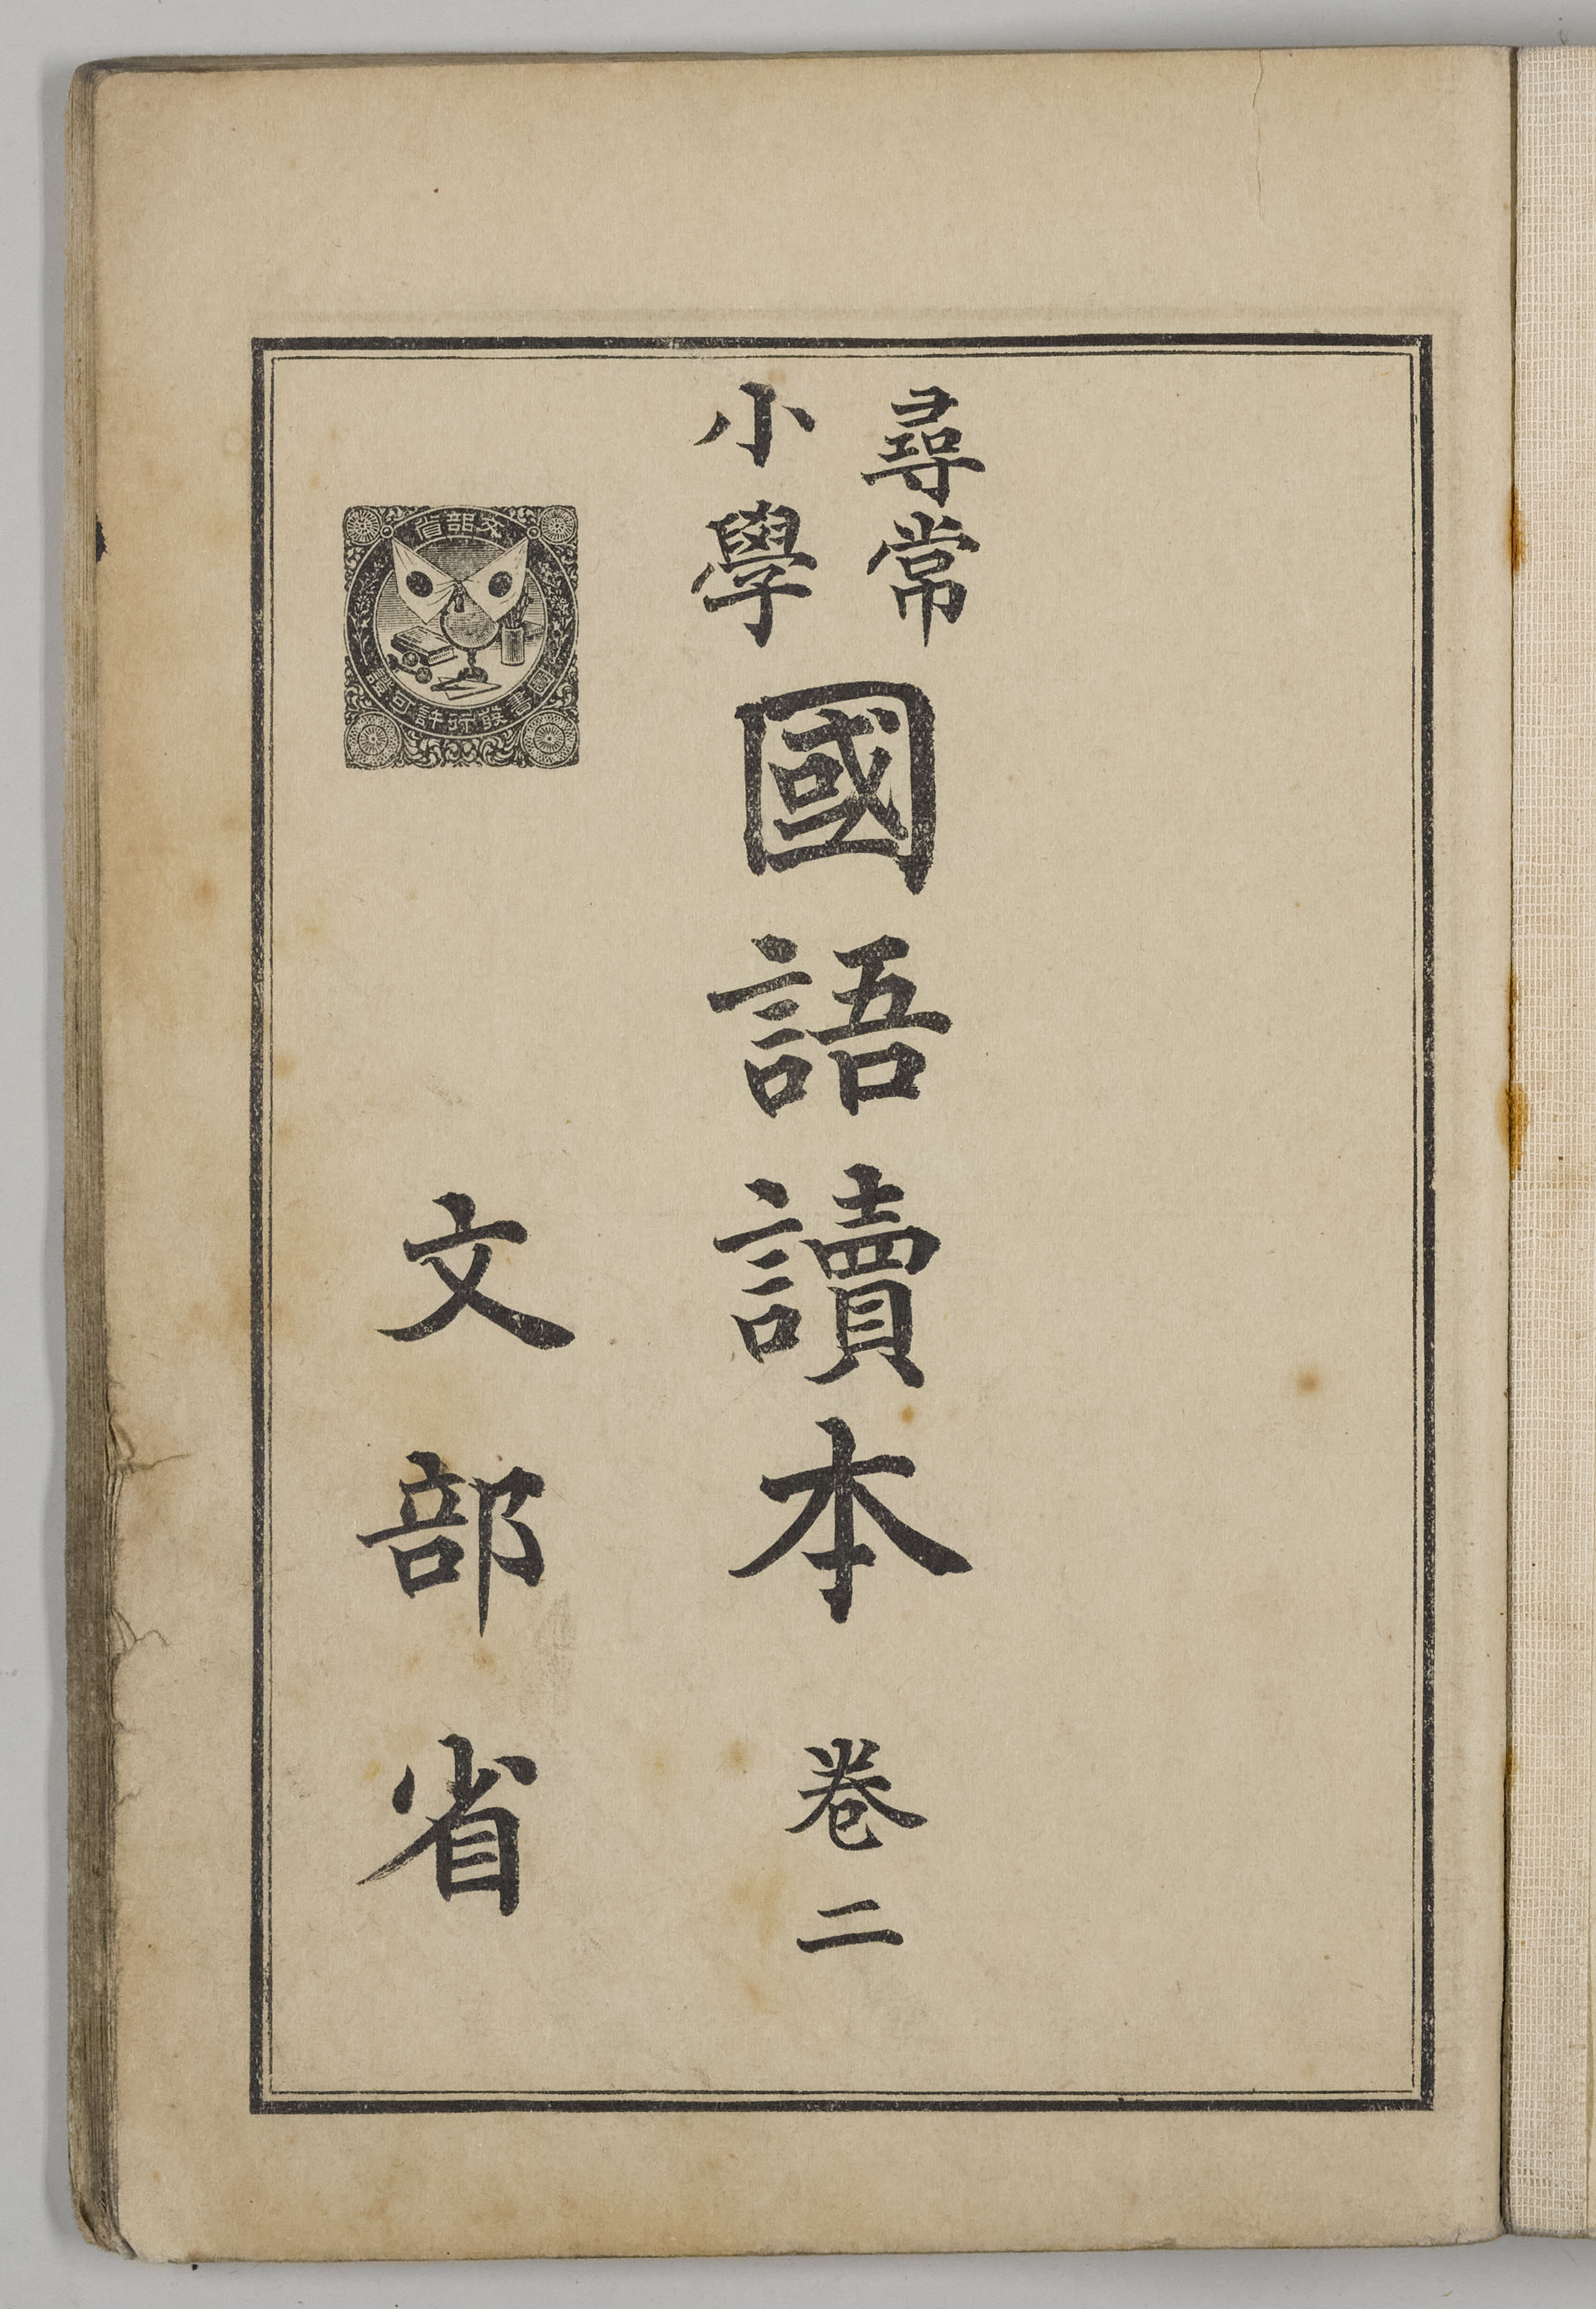 尋常
小學
國語讀本 卷二
文部省
文部省
圖書發行許可證